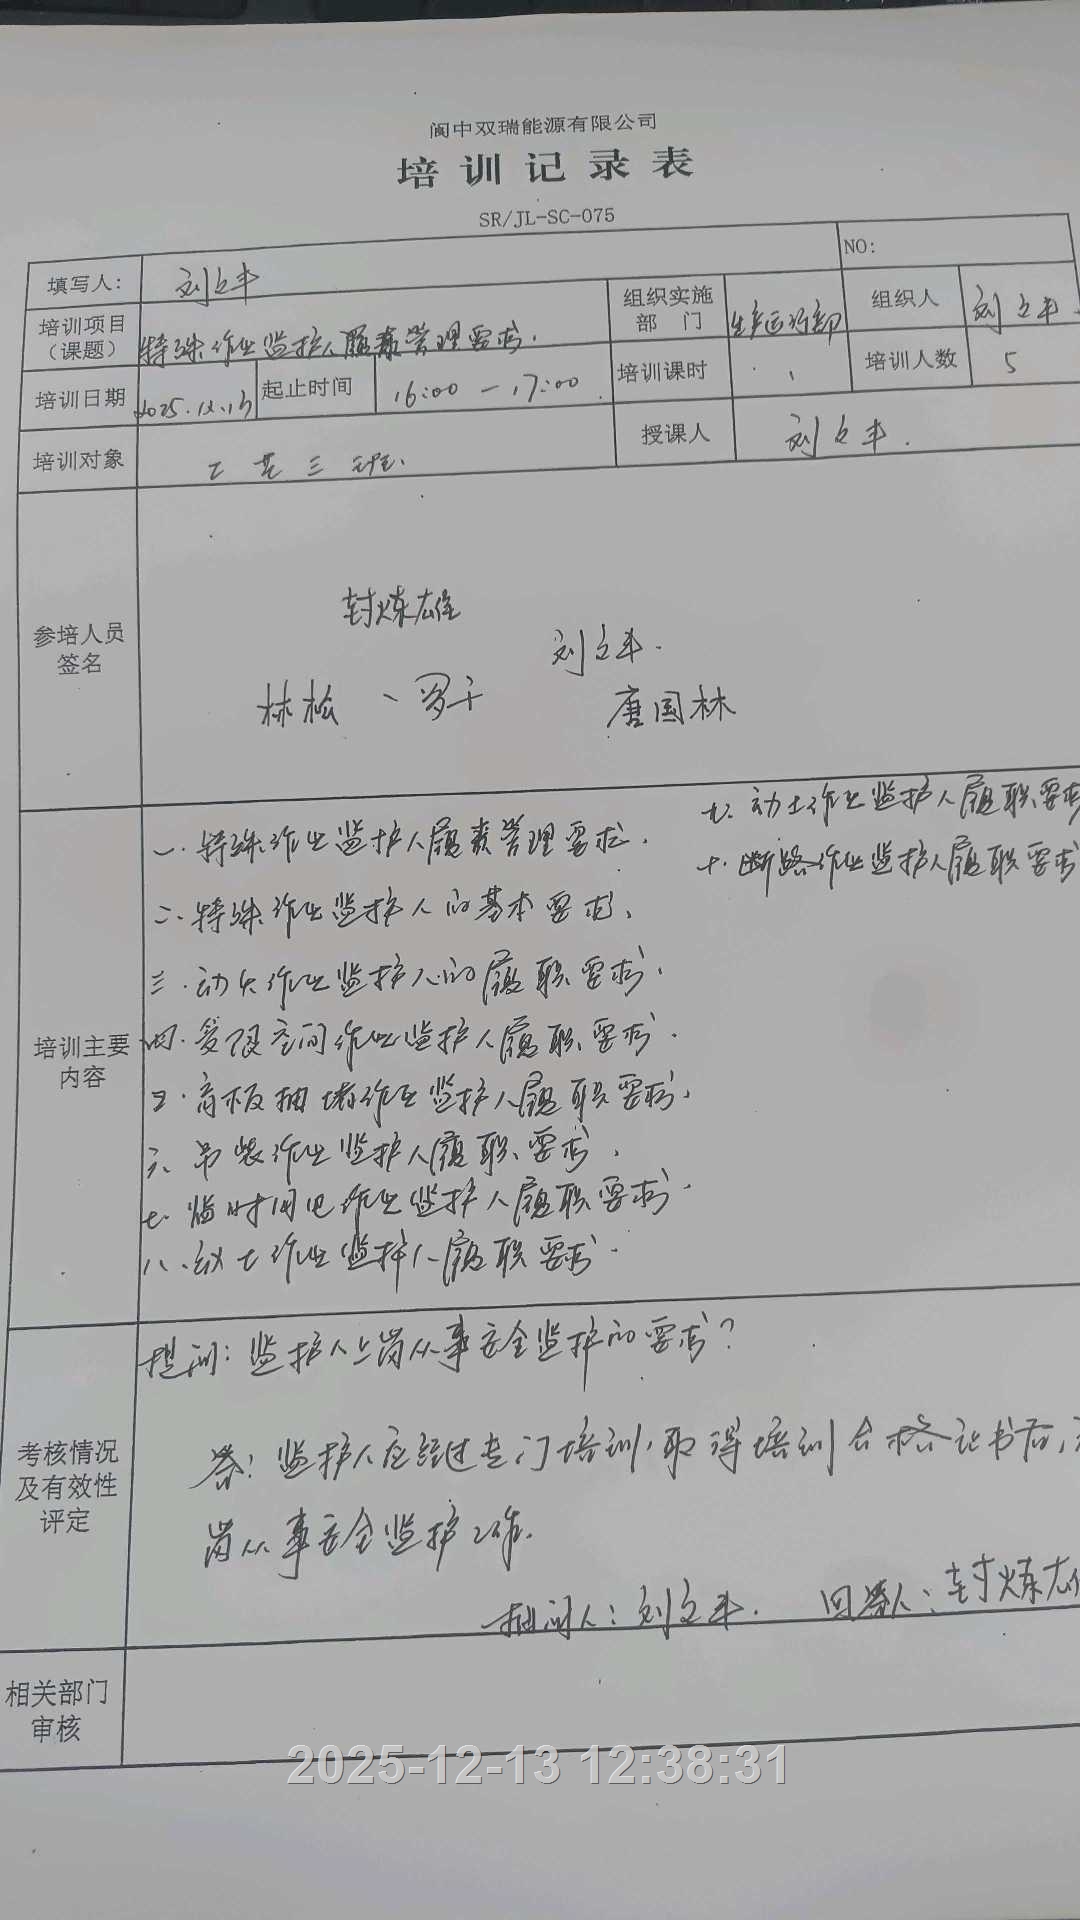 阆中双瑞能源有限公司
培训记录表
SR/JL-SC-075
NO:
填写人: 刘立丰
培训项目（课题） 特殊作业监护人履素管理要求.
组织实施部门 生产运行部
组织人 刘立丰
培训日期 2025.12.13
起止时间 16:00 — 17:00
培训课时 1
培训人数 5
培训对象 工艺三班.
授课人 刘立丰.
参培人员签名
封炼雄
刘立丰.
林松 、罗于
唐国林
培训主要内容
一.特殊作业监护人履素管理要求.
二、特殊作业监护人的基本要求,
三.动火作业监护人的履职要求.
四.受限空间作业监护人履职要求.
五.盲板抽堵作业监护人履职要求.
六、吊装作业监护人履职要求.
七.临时用电作业监护人履职要求.
八.动土作业监护人履职要求.
九.动土作业监护人履职要求
十.断路作业监护人履职要求
考核情况及有效性评定
提问:监护人上岗从事安全监护的要求?
答:监护人应经过专门培训,取得培训合格证书后,
岗从事安全监护工作.
抽问人:刘立丰. 回答人:封炼雄
相关部门审核
2025-12-13 12:38:31